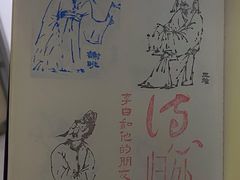 謝朓
王維
李白和他的朋友
诗